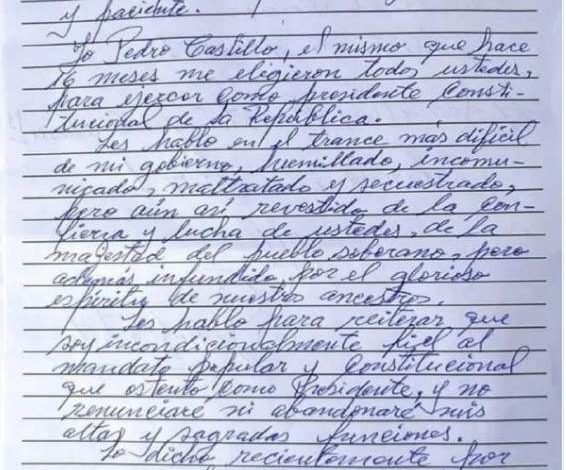 y paciente.
Yo Pedro Castillo, el mismo que hace
16 meses me eligieron todos ustedes,
para ejercer como presidente Consti-
tucional de la República.
Les hablo en el trance más difícil
de mi gobierno, humillado, incomu-
nicado, maltratado y secuestrado,
pero aún así revestido de la con-
fierza y lucha de ustedes, de la
majestad del pueblo soberano, pero
además infundido por el glorioso
espíritu de nuestros ancestros.
Les hablo para reiterar que
soy incondicionalmente fiel al
mandato popular y Constitucional
que ostento como Presidente, y no
renunciaré ni abandonaré mis
altas y sagradas funciones.
Lo dicho recientemente por